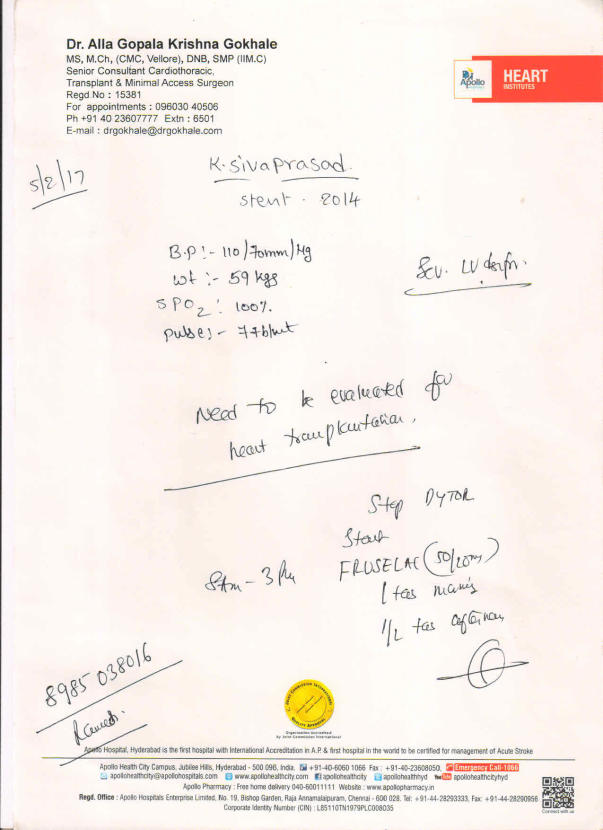 Dr. Alla Gopala Krishna Gokhale
MS, M.Ch, (CMC, Vellore), DNB, SMP (IIM.C)
Senior Consultant Cardiothoracic,
Transplant & Minimal Access Surgeon
Regd.No : 15381
For appointments : 096030 40506
Ph +91 40 23607777 Extn : 6501
E-mail : drgokhale@drgokhale.com
Apollo
HEART
INSTITUTES
5/2/17
K. Siva Prasad.
Stent - 2014
B.P :- 110/70mm/Hg
wt :- 59 kgs
SPO2 : 100%
Pulse :- 77b/mt
Sev. LV dysfn.
Need to be evaluated for
heart transplantation.
Stop DYTOR
Start
FRUSELAC (50/20mg)
8Am - 3 Pm
1 tab
1/2 tab
8985 038016
Ramesh
Organization Accredited
by Joint Commission International
Apollo Hospital, Hyderabad is the first hospital with International Accreditation in A.P & first hospital in the world to be certified for management of Acute Stroke
Apollo Health City Campus, Jubilee Hills, Hyderabad - 500 096, India. +91-40-6060 1066 Fax : +91-40-23608050, Emergency Call-1066
apollohealthcity@apollohospitals.com www.apollohealthcity.com apollohealthcity apollohealthhyd apollohealthcityhyd
Apollo Pharmacy : Free home delivery 040-60011111 Website : www.apollopharmacy.in
Regd. Office : Apollo Hospitals Enterprise Limited, No. 19, Bishop Garden, Raja Annamalaipuram, Chennai - 600 028. Tel: +91-44-28293333, Fax: +91-44-28290956
Corporate Identity Number (CIN) : L85110TN1979PLC008035
Connect with us